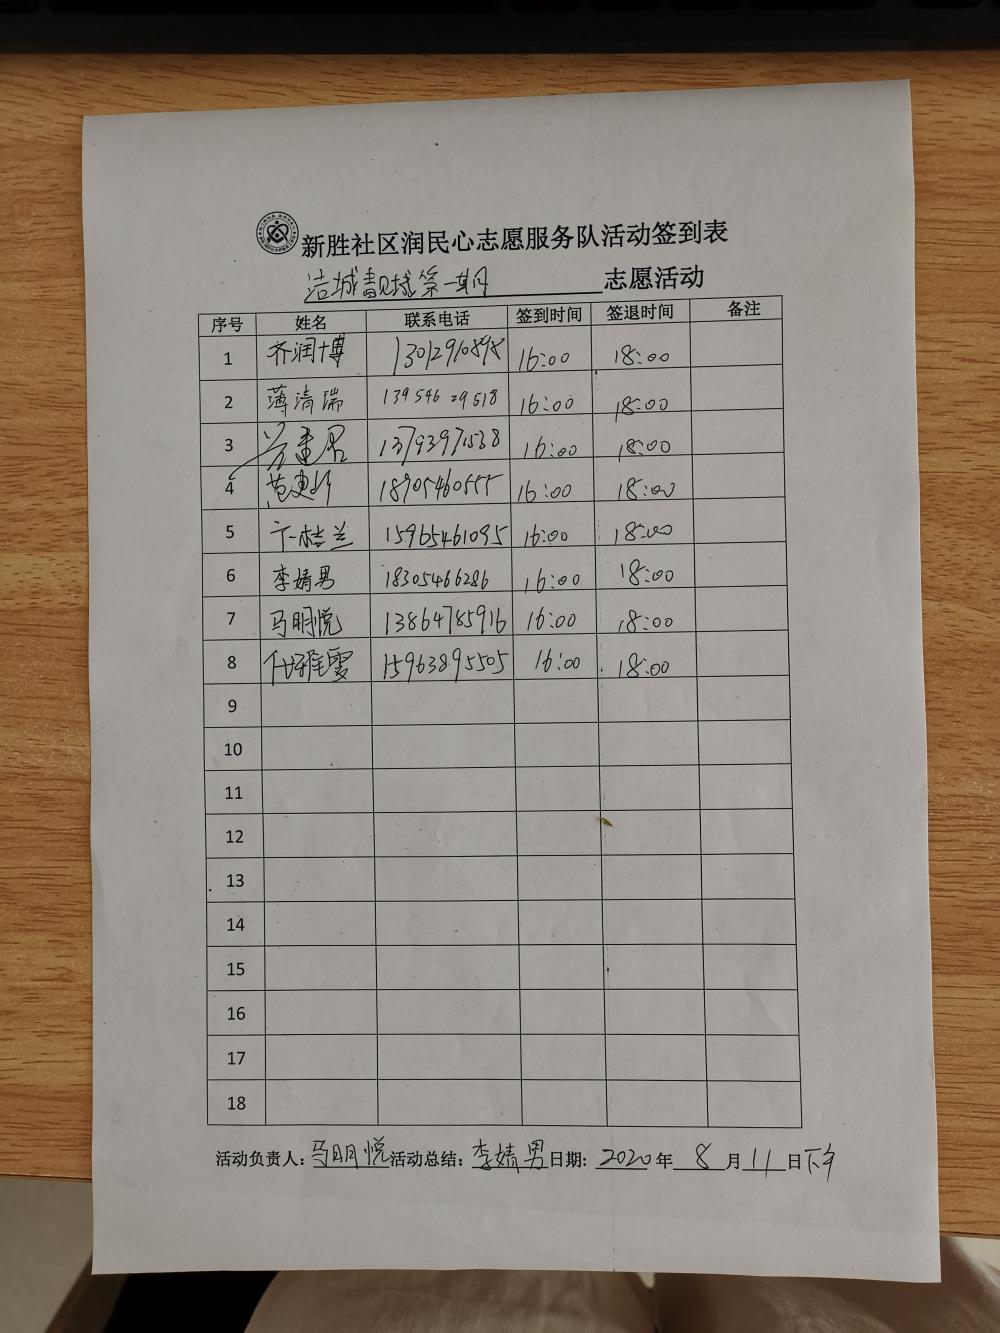 新胜社区润民心志愿服务队活动签到表
洁城靓球第一期 志愿活动
序号 姓名 联系电话 签到时间 签退时间 备注
1 齐润博 13012910898 16:00 18:00
2 薄清瑞 13954629518 16:00 18:00
3 13793971538 16:00 18:00
4 18905460555 16:00 18:00
5 桂兰 15965461095 16:00 18:00
6 李婧男 18305466286 16:00 18:00
7 马明悦 13864785916 16:00 18:00
8 代雅雯 15963895505 16:00 18:00
9
10
11
12
13
14
15
16
17
18
活动负责人: 马明悦 活动总结: 李婧男 日期: 2020 年 8 月 11 日下午